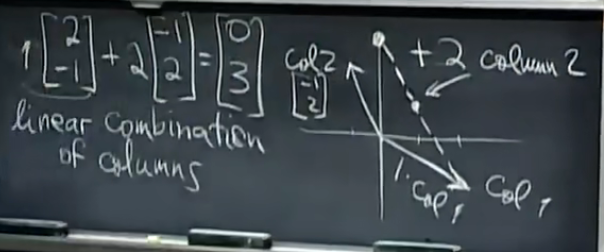 1 [2 -1] + 2 [-1 2] = [0 3]
linear combination
of columns
+2 column 2
col2
[-1 2]
1. col 1
col 1